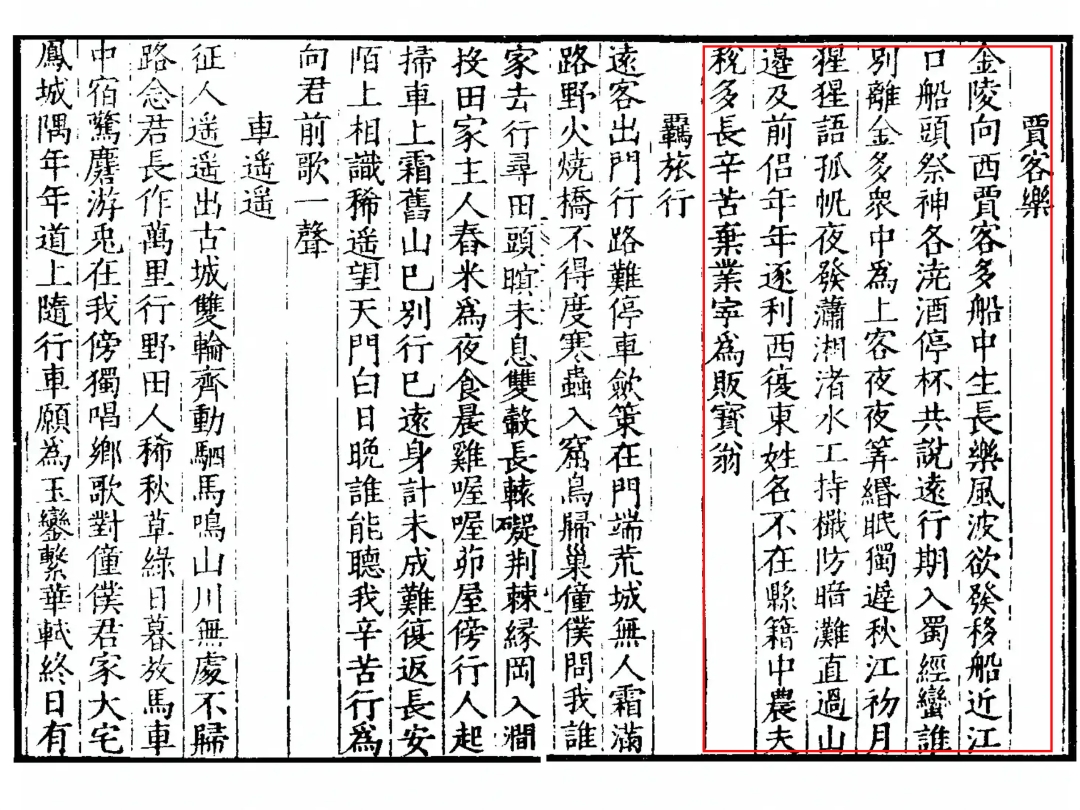 賈客樂
金陵向西賈客多船中生長樂風波欲發移船近江
口船頭祭神各澆酒停杯共說遠行期入蜀經蠻誰
別離金多衆中爲上客夜夜筭緡眠獨遲秋江初月
猩猩語孤帆夜發瀟湘渚水工持檝防暗灘直過山
邊及前侣年年逐利西復東姓名不在縣籍中農夫
稅多長辛苦棄業寜爲販寳翁
羈旅行
遠客出門行路難停車歛策在門端荒城無人霜滿
路野火燒橋不得度寒蟲入窟鳥歸巢僮僕問我誰
家去行尋田頭暝未息雙轂長轅礙荆棘緣岡入澗
投田家主人舂米爲夜食晨雞喔喔茆屋傍行人起
掃車上霜舊山巳別行巳遠身計未成難復返長安
陌上相識稀遥望天門白日晚誰能聽我辛苦行爲
向君前歌一聲
車遥遥
征人遥遥出古城雙輪齊動駟馬鳴山川無處不歸
路念君長作萬里行野田人稀秋草綠日暮放馬車
中宿驚麏游兎在我傍獨唱鄉歌對僮僕君家大宅
鳳城隅年年道上隨行車願爲玉鑾繫華軾終日有